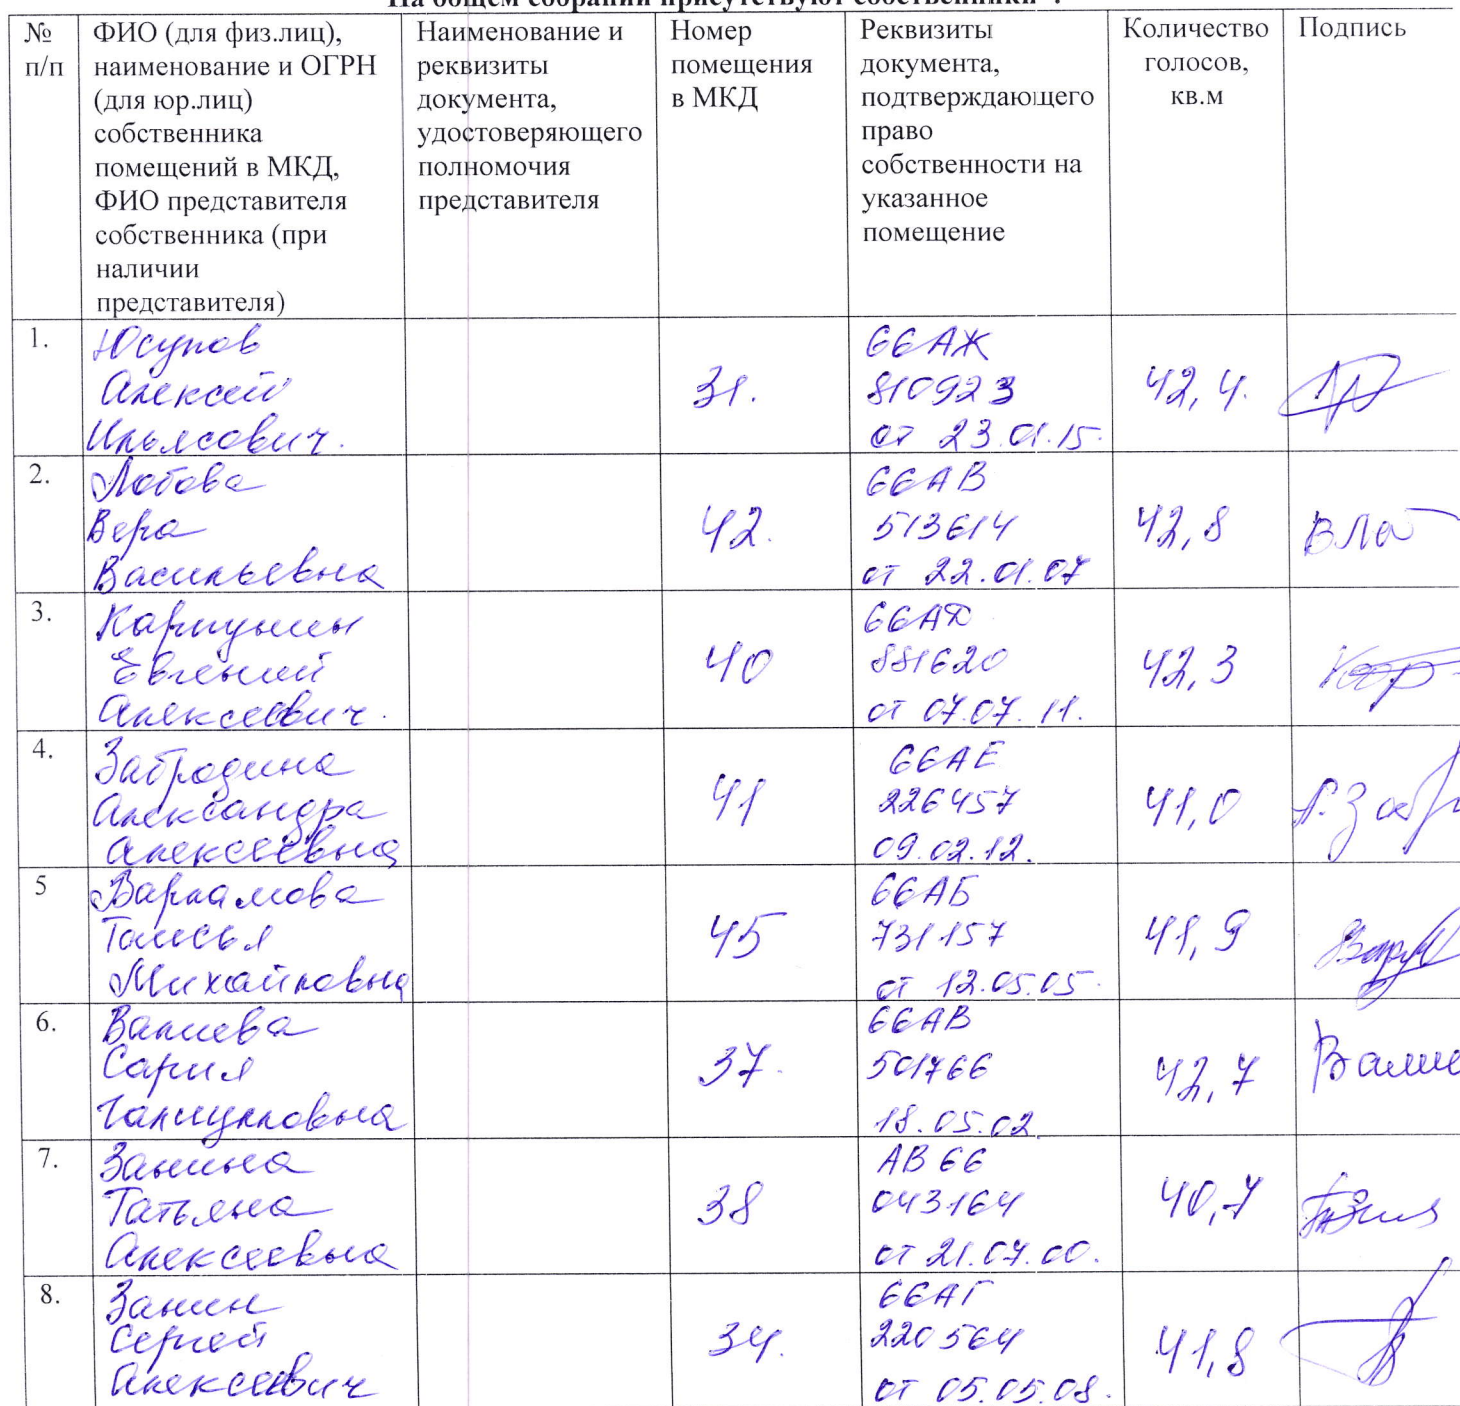 На общем собрании присутствуют собственники
№ п/п
ФИО (для физ.лиц),
наименование и ОГРН
(для юр.лиц)
собственника
помещений в МКД,
ФИО представителя
собственника (при
наличии
представителя)
Наименование и
реквизиты
документа,
удостоверяющего
полномочия
представителя
Номер
помещения
в МКД
Реквизиты
документа,
подтверждающего
право
собственности на
указанное
помещение
Количество
голосов,
кв.м
Подпись
1.
Юсупов
Алексей
Ильясович.
31.
66АЖ
810923
от 23.01.15.
42,4.
2.
Лобова
Вера
Васильевна
42.
66АВ
513614
от 22.01.07
42,8
ВЛоб
3.
Карпушин
Евгений
Алексеевич.
40
66АД
881620
от 07.07.11.
42,3
4.
Забродина
Александра
Алексеевна
41
66АЕ
226457
09.02.12.
41,0
А.Забр
5
Варламова
Таисья
Михайловна
45
66АБ
731157
от 12.05.05.
41,9
6.
Валиева
Сария
Галиулловна
37.
66АВ
501766
18.05.02.
42,7
Валие
7.
Занина
Татьяна
Алексеевна
38
АВ 66
043164
от 21.07.00.
40,7
8.
Занин
Сергей
Алексеевич
34.
66АГ
220564
от 05.05.08.
41,8